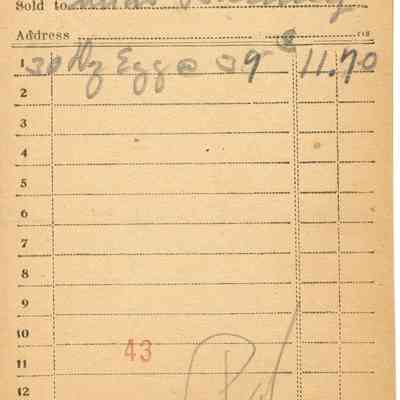 Sold to
Address
1 30 Dz Egg @ 39¢ 11.70
2
3
4
5
6
7
8
9
10
43
11
12
Pd